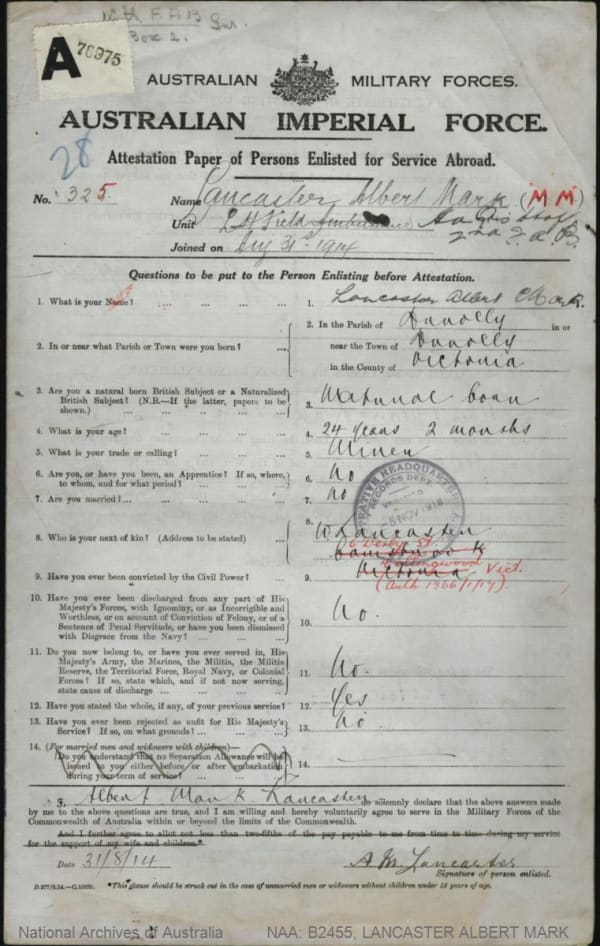 Box 2.
A 76975
AUSTRALIAN MILITARY FORCES.
AUSTRALIAN IMPERIAL FORCE.
28
Attestation Paper of Persons Enlisted for Service Abroad.
No. 325 Name Lancaster, Albert Mark (M.M)
Unit 2nd Field Ambulance
2nd F.A.B.
Joined on Aug 31st 1914
Questions to be put to the Person Enlisting before Attestation.
1. What is your Name? ... ... ... ... 1. Lancaster Albert Mark.
2. In or near what Parish or Town were you born? ... 2. In the Parish of Dunolly in or
near the Town of Dunolly
in the County of Victoria
3. Are you a natural born British Subject or a Naturalized
British Subject? (N.B.—If the latter, papers to be
shown.) ... ... ... ... ... 3. Natural born
4. What is your age? ... ... ... ... 4. 24 years 2 months
5. What is your trade or calling? ... ... ... 5. Miner
6. Are you, or have you been, an Apprentice? If so, where,
to whom, and for what period? ... ... ... 6. No
7. Are you married?... ... ... ... ... 7. No
RECORDS DEPT.
NOV 1918
8. Who is your next of kin? (Address to be stated) ... 8. W Lancaster
6 Derby St.
Collingwood Vict.
9. Have you ever been convicted by the Civil Power? ... 9. Victoria
(Auth 1366/1/17)
10. Have you ever been discharged from any part of His
Majesty's Forces, with Ignominy, or as Incorrigible and
Worthless, or on account of Conviction of Felony, or of a
Sentence of Penal Servitude, or have you been dismissed
with Disgrace from the Navy? ... ... ... 10. No.
11. Do you now belong to, or have you ever served in, His
Majesty's Army, the Marines, the Militia, the Militia
Reserve, the Territorial Force, Royal Navy, or Colonial
Forces? If so, state which, and if not now serving,
state cause of discharge ... ... ... ... 11. No.
12. Have you stated the whole, if any, of your previous service? 12. Yes
13. Have you ever been rejected as unfit for His Majesty's
Service? If so, on what grounds? ... ... ... 13. No
14. (For married men and widowers with children)—
Do you understand that no Separation Allowance will be
issued to you either before or after embarkation
during your term of service? 14.
I, Albert Mark Lancaster do solemnly declare that the above answers made
by me to the above questions are true, and I am willing and hereby voluntarily agree to serve in the Military Forces of the
Commonwealth of Australia within or beyond the limits of the Commonwealth.
And I further agree to allot not less than two-fifths of the pay payable to me from time to time during my service
for the support of my wife and children.*
Date 31/8/14 A M Lancaster
Signature of person enlisted.
*This clause should be struck out in the case of unmarried men or widowers without children under 18 years of age.
National Archives of Australia NAA: B2455, LANCASTER ALBERT MARK